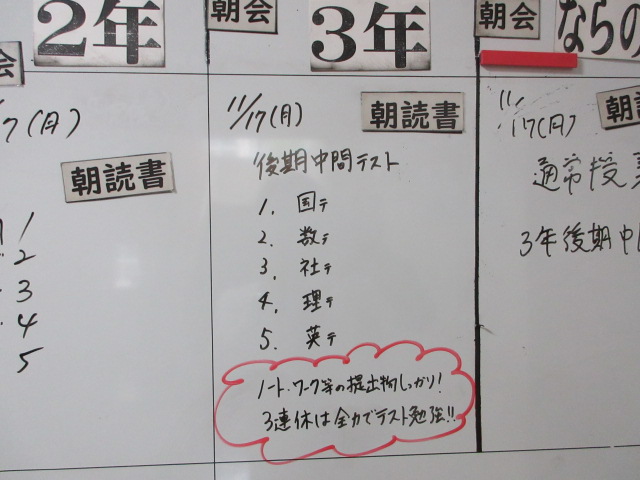 2年
朝会
3年
朝会
ならの
会
7(月)
朝読書
1
2
3
4
5
11/17(月)
朝読書
後期中間テスト
1. 国テ
2. 数テ
3. 社テ
4. 理テ
5. 英テ
ノート・ワーク等の提出物しっかり!
3連休は全力でテスト勉強!!
11/17(月)
朝読
通常授業
3年後期中